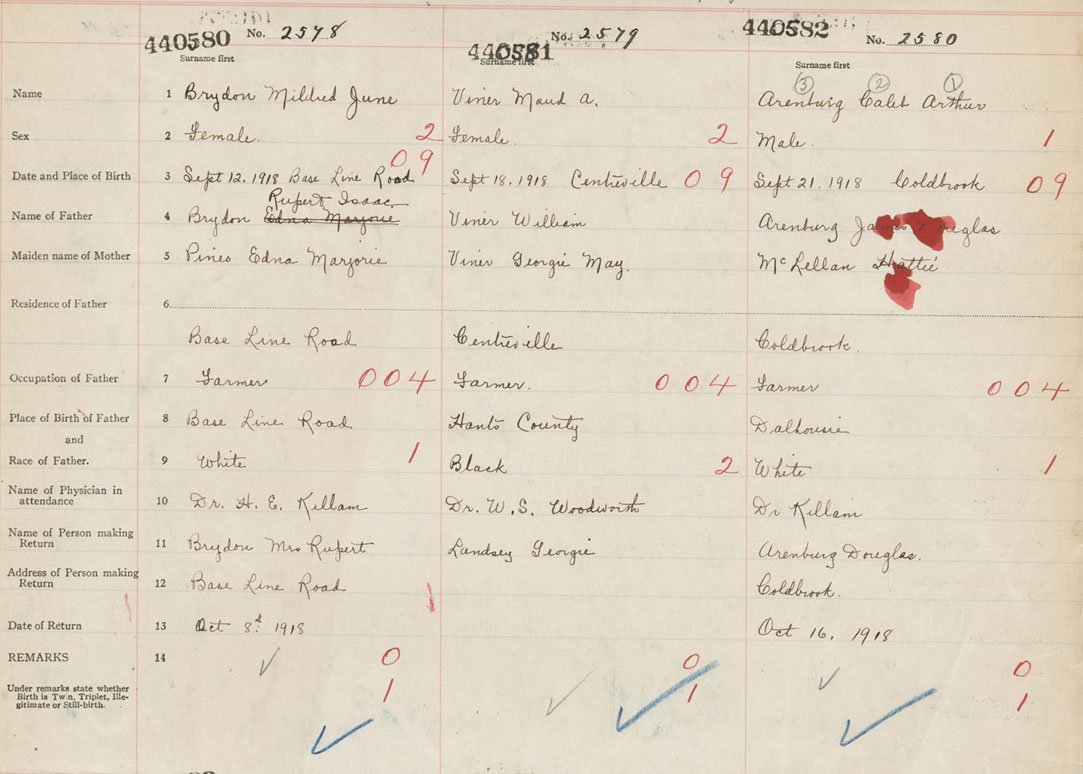 440580 No. 2578 440581 No. 2579 440582 No. 2580
Surname first Surname first Surname first
3 2 1
Name 1 Brydon Mildred June Viner Maud A. Arenburg Calet Arthur
Sex 2 Female. 2 Female. 2 Male. 1
Date and Place of Birth 3 Sept 12, 1918 Base Line Road 09 Sept 18, 1918 Centreville 09 Sept 21, 1918 Coldbrook 09
Rupert Isaac
Name of Father 4 Brydon Edna Marjorie Viner William Arenburg James Douglas
Maiden name of Mother 5 Pineo Edna Marjorie Viner Georgie May. McLellan Hattie
Residence of Father 6
Base Line Road Centreville Coldbrook.
Occupation of Father 7 Farmer 004 Farmer. 004 Farmer 004
Place of Birth of Father 8 Base Line Road Hants County Dalhousie
and
Race of Father. 9 White 1 Black 2 White 1
Name of Physician in
attendance 10 Dr. H. E. Killam Dr. W. S. Woodworth Dr Killam
Name of Person making
Return 11 Brydon Mrs Rupert Landsey Georgie Arenburg Douglas.
Address of Person making
Return 12 Base Line Road Coldbrook.
Date of Return 13 Oct 8th 1918 Oct 16, 1918
REMARKS 14 0 0 0
Under remarks state whether
Birth is Twin, Triplet, Ille-
gitimate or Still-birth. 1 1 1